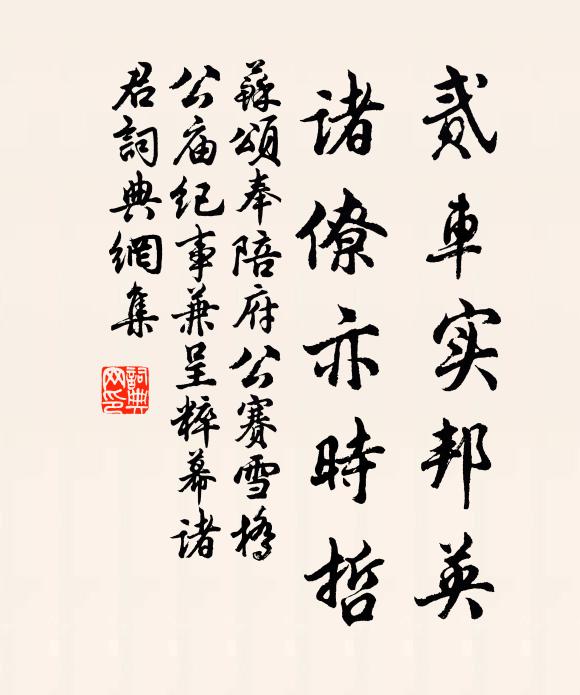 贰車实邦英
諸僚亦時哲
蘇頌奉陪府公賽雪橋
公庙纪事兼呈粹幕諸
君詞典網集
詞典网印